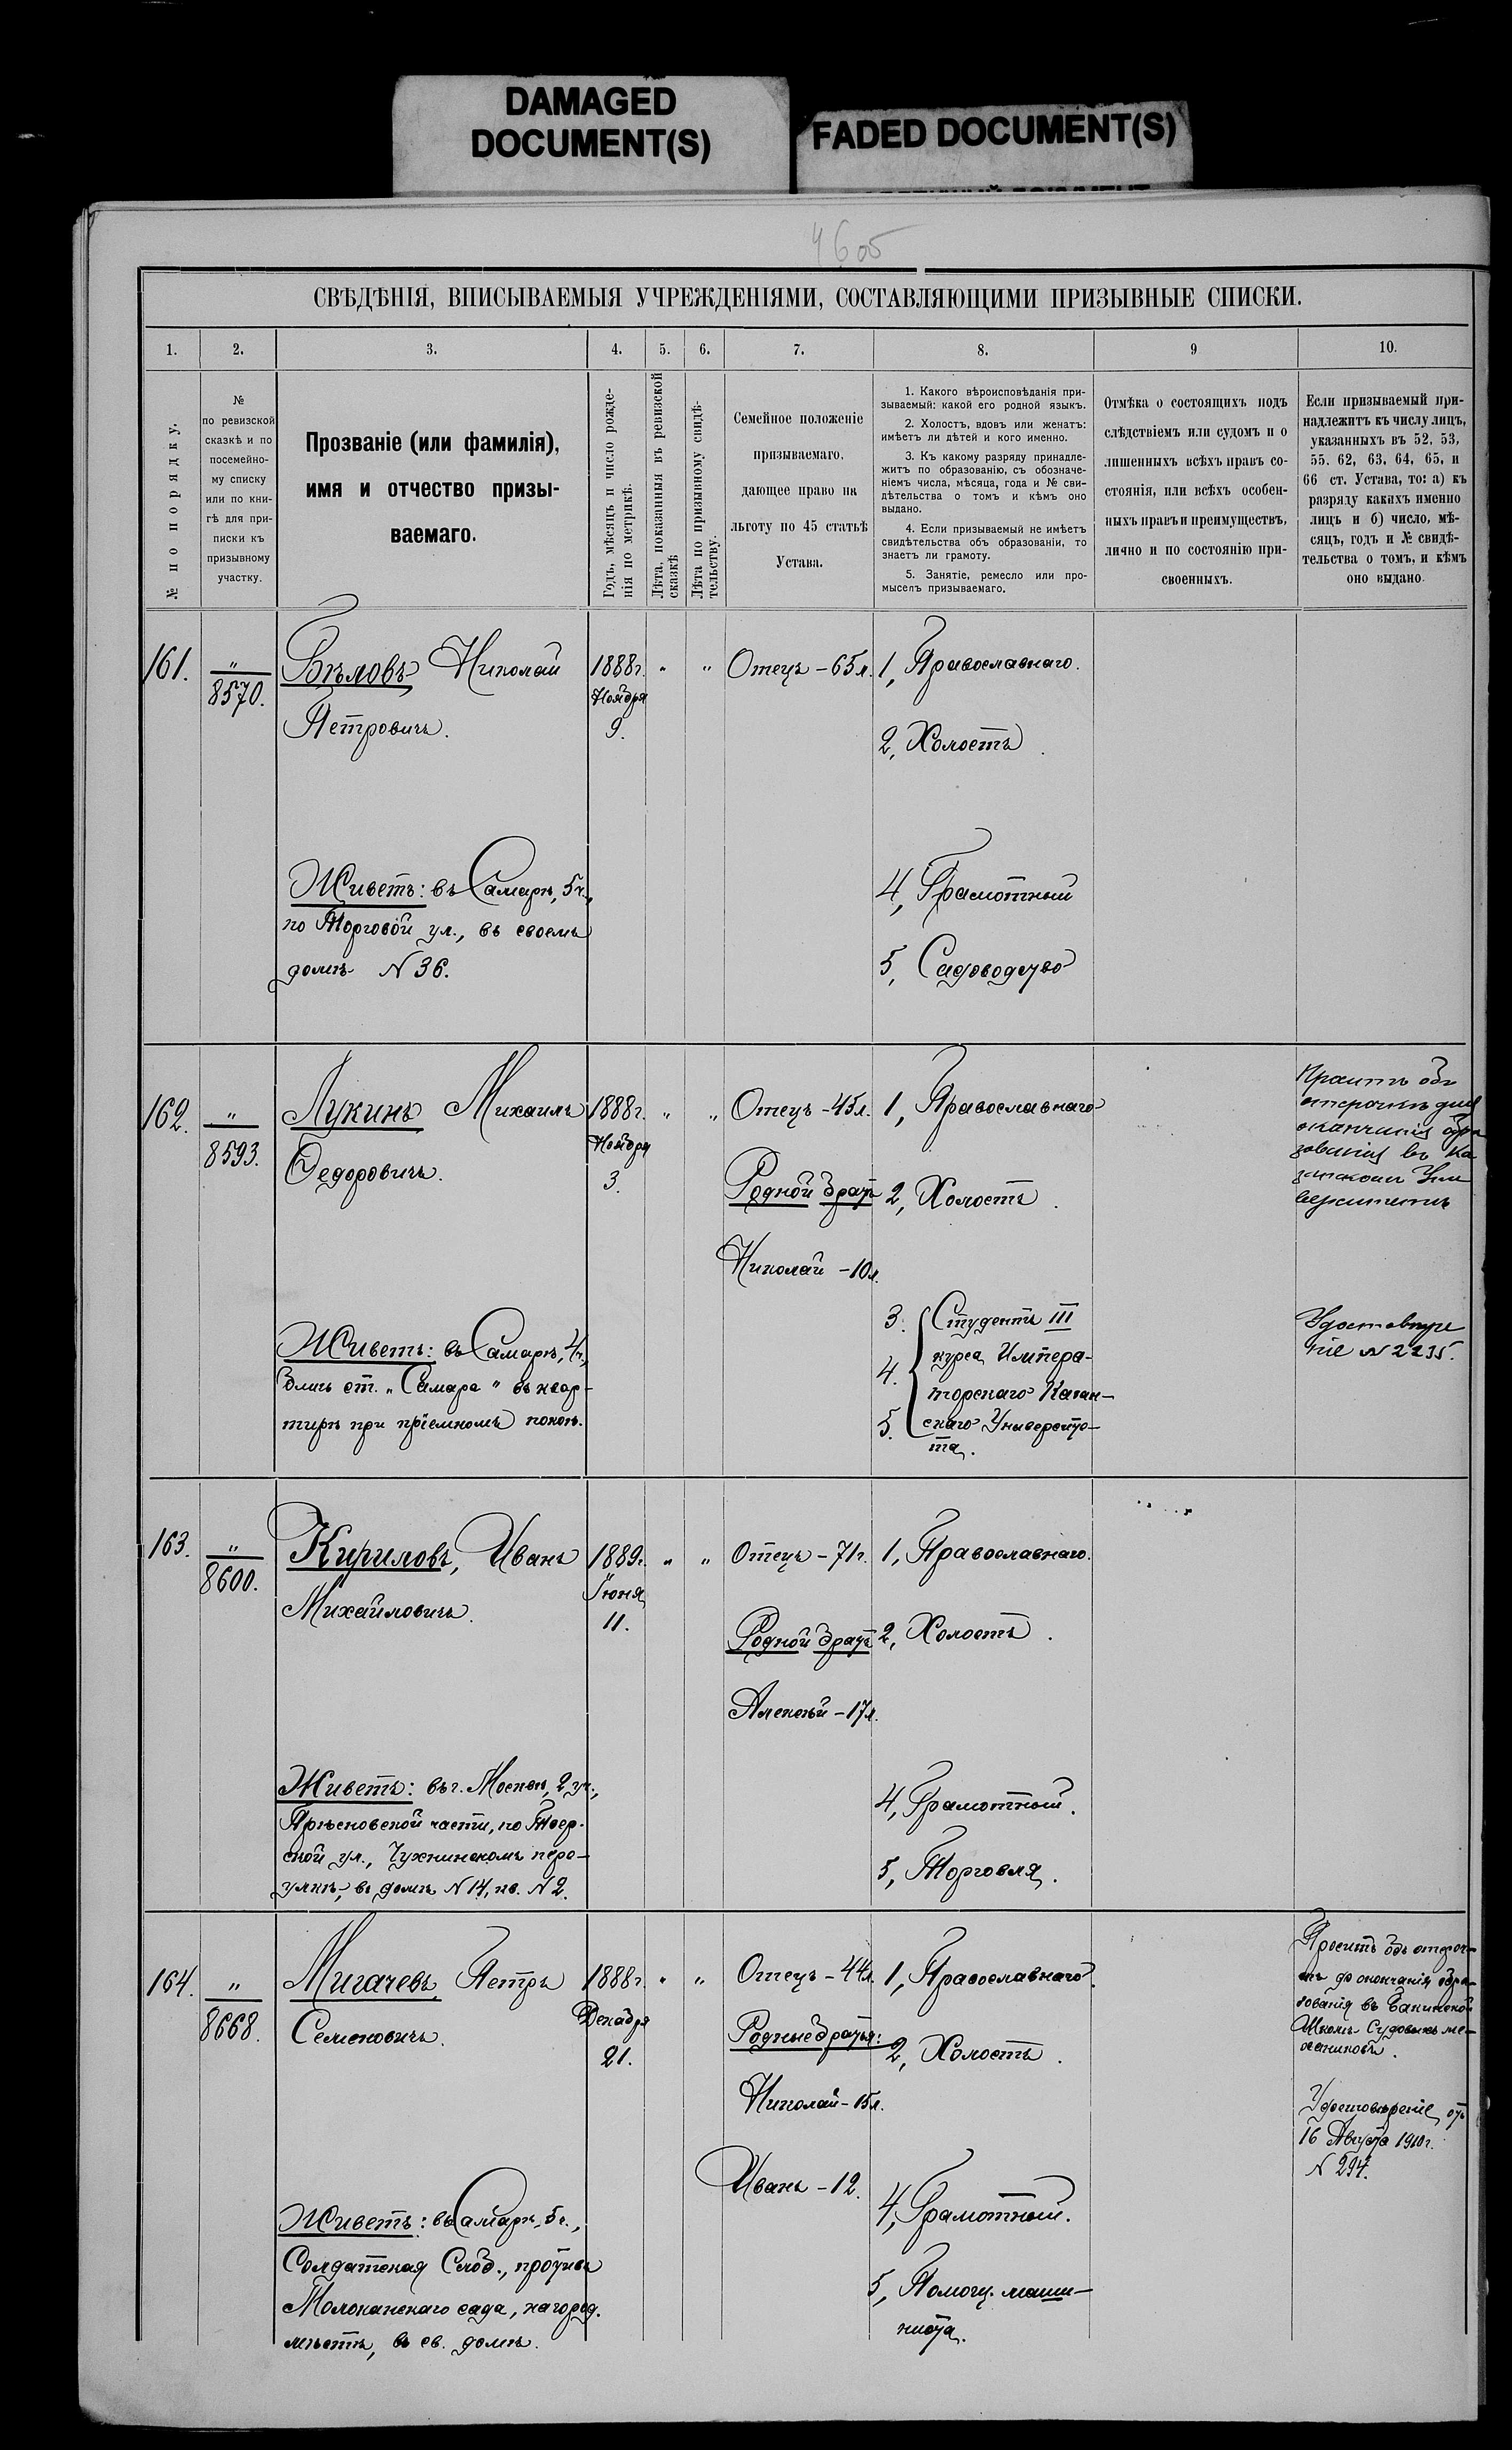 DAMAGED
DOCUMENT(S)
FADED DOCUMENT(S)
4605
СВѢДѢНІЯ, ВПИСЫВАЕМЫЯ УЧРЕЖДЕНІЯМИ, СОСТАВЛЯЮЩИМИ ПРИЗЫВНЫЕ СПИСКИ.
1.
2.
3.
4.
5.
6.
7.
8.
9
10.
№ по порядку.
№
по ревизской
сказкѣ и по
посемейно-
му списку
или по кни-
гѣ для при-
писки къ
призывному
участку.
Прозваніе (или фамилія),
имя и отчество призы-
ваемаго.
Годъ, мѣсяцъ и число рожде-
нія по метрикѣ.
Лѣта, показанныя въ ревизской
сказкѣ
Лѣта по призывному свидѣ-
тельству.
Семейное положеніе
призываемаго,
дающее право на
льготу по 45 статьѣ
Устава.
1. Какого вѣроисповѣданія при-
зываемый: какой его родной языкъ.
2. Холостъ, вдовъ или женатъ:
имѣетъ ли дѣтей и кого именно.
3. Къ какому разряду принадле-
житъ по образованію, съ обозначе-
ніемъ числа, мѣсяца, года и № сви-
дѣтельства о томъ и кѣмъ оно
выдано.
4. Если призываемый не имѣетъ
свидѣтельства объ образованіи, то
знаетъ ли грамоту.
5. Занятіе, ремесло или про-
мыселъ призываемаго.
Отмѣка о состоящихъ подъ
слѣдствіемъ или судомъ и о
лишенныхъ всѣхъ правъ со-
стоянія, или всѣхъ особен-
ныхъ правъ и преимуществъ,
лично и по состоянію при-
своенныхъ.
Если призываемый при-
надлежитъ къ числу лицъ,
указанныхъ въ 52, 53,
55. 62, 63, 64, 65, и
66 ст. Устава, то: а) къ
разряду какихъ именно
лицъ и б) число, мѣ-
сяцъ, годъ и № свидѣ-
тельства о томъ, и кѣмъ
оно выдано.
161.
"
8570.
Бѣловъ Николай
Петровичъ.
Живетъ: въ Самарѣ, 5ч.,
по Торговой ул., въ своемъ
домѣ N 36.
1888г.
Ноября
9.
"
"
Отецъ - 65л.
1, Православнаго.
2, Холостъ.
4, Грамотный
5, Садоводство
162.
"
8593.
Лукинъ Михаилъ
Федоровичъ.
Живетъ: въ Самарѣ, 4ч.,
близъ ст. „Самара" въ квар-
тирѣ при пріемномъ покоѣ.
1888г.
Ноября
3.
"
"
Отецъ - 45л.
Родной братъ
Николай - 10л.
1, Православнаго
2, Холостъ.
3.
4.
5.
Студентъ III
курса Импера-
торскаго Казан-
скаго Университе-
та.
Проситъ объ
отсрочкѣ для
окончанія обра
зованія въ Ка
занскомъ Уни
верситетѣ
Удостовѣре
ніе N 2235.
163.
"
8600.
Кириловъ, Иванъ
Михайловичъ.
Живетъ: въ г. Москвѣ, 2 уч.,
Прѣсненской части, по Твер-
ской ул., Чухнинскомъ пере-
улкѣ, въ домѣ N 14, кв. N 2.
1889г.
Іюня
11.
"
"
Отецъ - 71г.
Родной братъ
Алексѣй - 17л.
1, Православнаго.
2, Холостъ.
4, Грамотный.
5, Торговля.
164.
"
8668.
Мигачевъ, Петръ
Семеновичъ.
Живетъ: въ Самарѣ, 5ч.,
Солдатская Слоб., противъ
Молоканскаго сада, на город.
мѣстѣ, въ св. домѣ.
1888г.
Декабря
21.
"
"
Отецъ - 44л.
Родные братья:
Николай - 15л.
Иванъ - 12.
1, Православнаго.
2, Холостъ.
4, Грамотный.
5, Помощ. маши-
ниста.
Проситъ объ отсроч-
кѣ до окончанія обра-
зованія въ Бакинской
Школѣ Судовыхъ ме-
ханиковъ.
Удостовѣреніе отъ
16 Августа 1910г.
N 294.